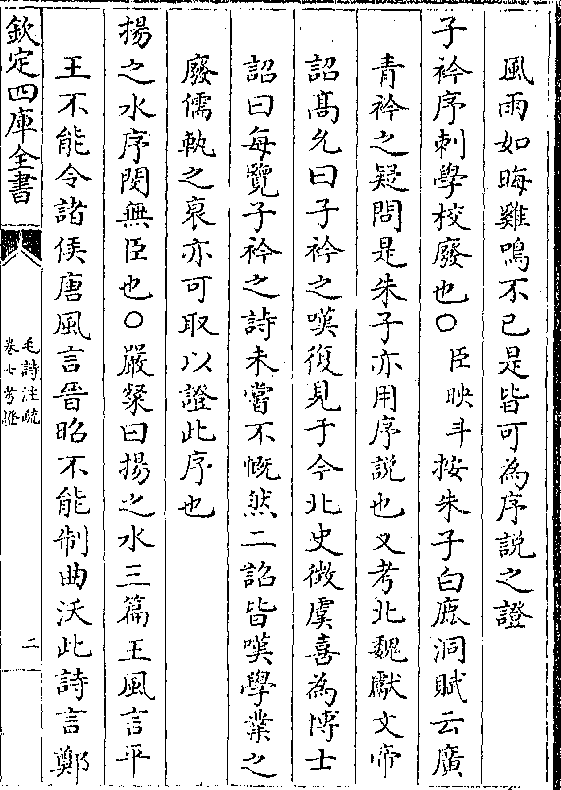 風雨如晦雞鳴不已是皆可為序説之證
子衿序刺學校廢也○臣映斗按朱子白鹿洞賦云廣
青衿之疑問是朱子亦用序説也又考北魏獻文帝
詔髙允曰子衿之嘆復見于今北史徴虞喜為博士
詔曰每覽子衿之詩未嘗不慨然二詔皆嘆學業之
廢儒執之衰亦可取以證此序也
揚之水序閔無臣也○嚴粲曰揚之水三篇王風言平
王不能令諸侯唐風言晉昭不能制曲沃此詩言鄭
欽定四庫全書
毛詩注疏
卷七考證
二